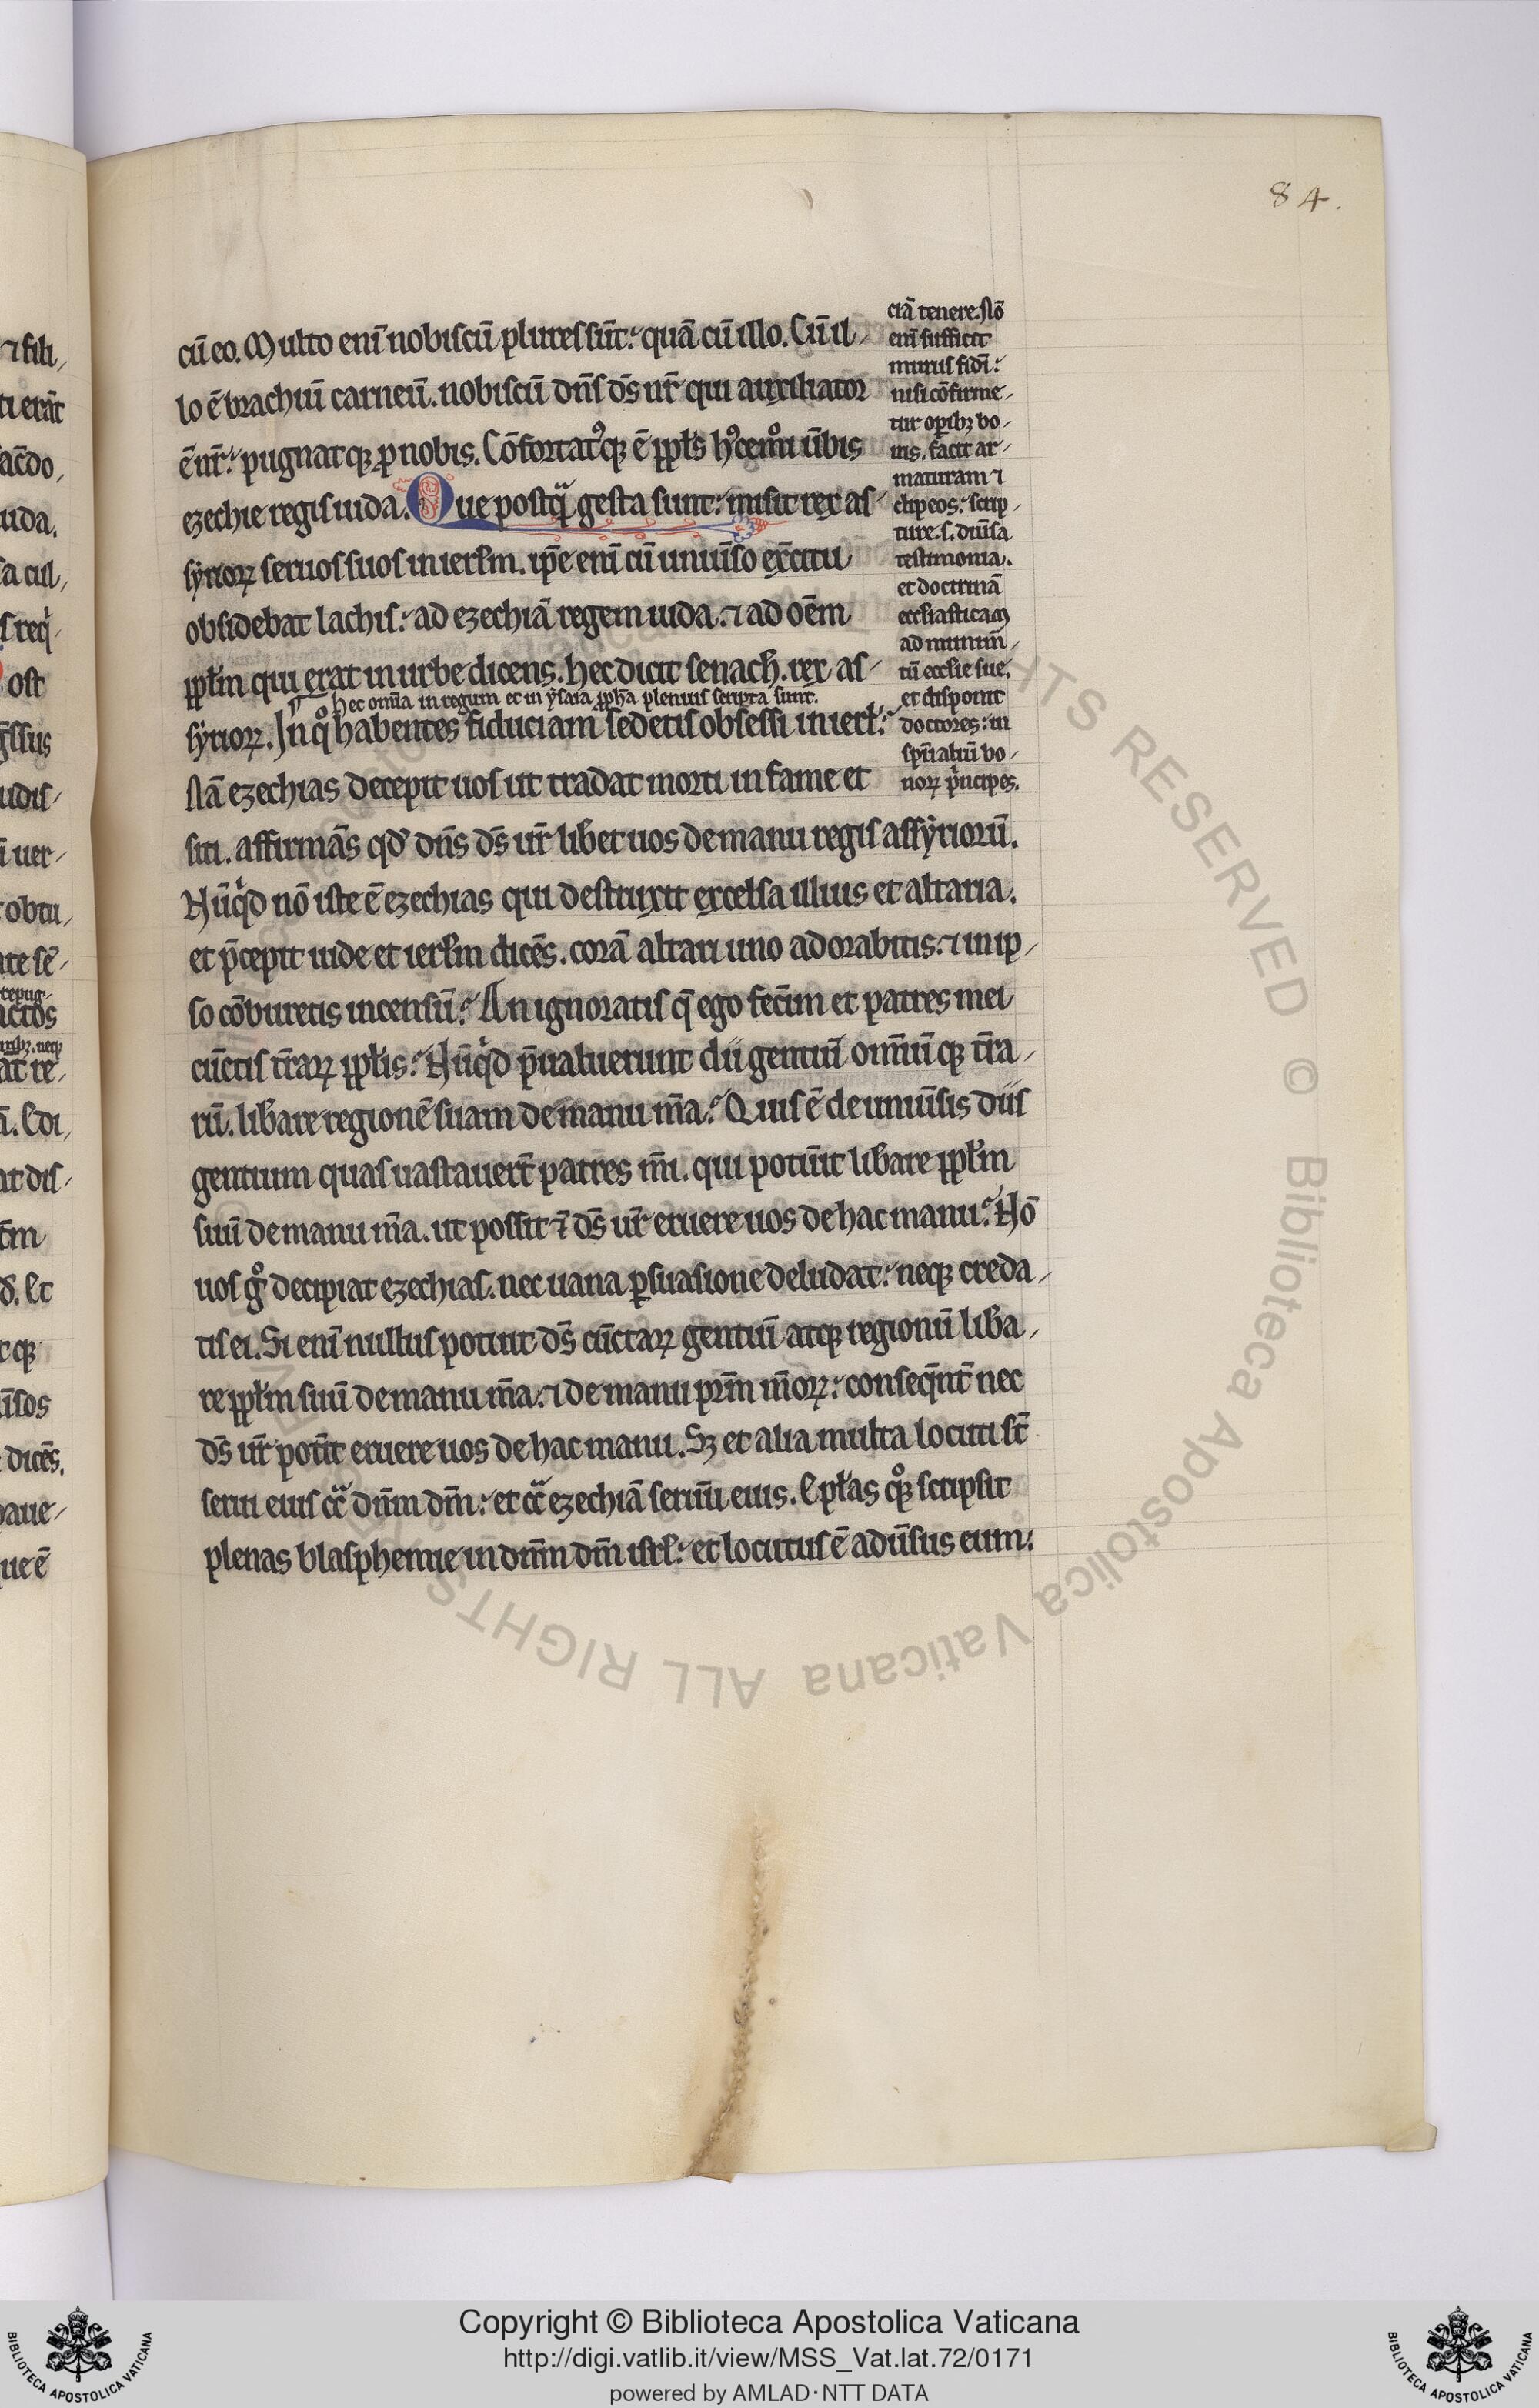 84.
cū eo. Multo enī nobiscū plures sūt: quā cū illo. Cū il
lo ē brachiū carneū. nobiscū dn̄s d̄s ur̄ qui auxiliator
ē nr̄: pugnatqꝫ ꝓ nobis. Cōfortatꝰqꝫ ē ppl̄s hꝰcemōi ūbis
ezechie regis iuda. Que postqᷓ gesta sunt: misit rex as
syrioꝝ seruos suos in ierl̄m. ip̄e enī cū uniūso ex̄citu
obsidebat lachis: ad ezechiā regem iuda. ⁊ ad oēm
ppl̄m qui erat in urbe dicens. hec dicit senach̄. rex as
hec om̄ia in regum et in ysaia ꝓph̄a plenius scripta sunt.
syrioꝝ. In qͦ habentes fiduciam sedetis obsessi in ierl̄:
Nā ezechias decepit uos ut tradat morti in fame et
siti. affirmās qd̓ dn̄s d̄s ur̄ lib̄et uos de manu regis assyriorū.
Nūqͥd nō iste ē ezechias qui destruxit excelsa illius et altaria.
et p̄cepit iude et ierl̄m dicēs. corā altari uno adorabitis: ⁊ in ip
so cōburetis incensū: An ignoratis q̄ ego fec̄im et patres mei
cūctis t̄raꝝ ppl̄is: Nūqͥd p̄ualuerunt dii gentiū omniūqꝫ t̄ra
rū. lib̄are regionē suam de manu m̄a: Quis ē de uniūsis diis
gentium quas uastauer̄t patres m̄i. qui potūit lib̄are ppl̄m
suū de manu m̄a. ut possit ⁊ d̄s ur̄ eruere uos de hac manu: Nō
uos gͦ decipiat ezechias. nec uana ꝑsuasione deludat: neqꝫ creda
tis ei. Si enī nullus potuit d̄s cūctaꝝ gentiū atqꝫ regionū lib̄a
re ppl̄m suū de manu m̄a. ⁊ de manu pr̄m m̄oꝝ: conseqn̄t nec
d̄s ur̄ pot̄it eruere uos de hac manu. Sꝫ et alia multa locuti st̄
serui eius cᷓ dn̄m dm̄: et cᷓ ezechiā seruū eius. Epl̄as qͦqꝫ scripsit
plenas blasphemie in dn̄m dm̄ isrl̄: et locutus ē adūsus eum:
ciā tenere. Nō
enī sufficit
murus fidi:
nisi cōfirme
tur opibꝫ bo
nis. facit ar
maturam ⁊
clipeos: scrip
ture. s. diūsa
testimonia.
et doctrinā
eccl̄iasticam
ad munim̄
tū eccl̄ie sue.
et disponit
doctores: in
sp̄ritaliū bo
noꝝ pͥncipes.
⁊ fili
ti erāt
uda.
s reqͥ
ost
udis
uer
obtu
te sē
at re
Edi
at dis
d̓. Et
ūsos
dicēs.
que ē
Copyright © Biblioteca Apostolica Vaticana
http://digi.vatlib.it/view/MSS_Vat.lat.72/0171
powered by AMLAD·NTT DATA
BIBLIOTECA APOSTOLICA VATICANA
BIBLIOTECA APOSTOLICA VATICANA
© Biblioteca Apostolica Vaticana ALL RIGHTS RESERVED